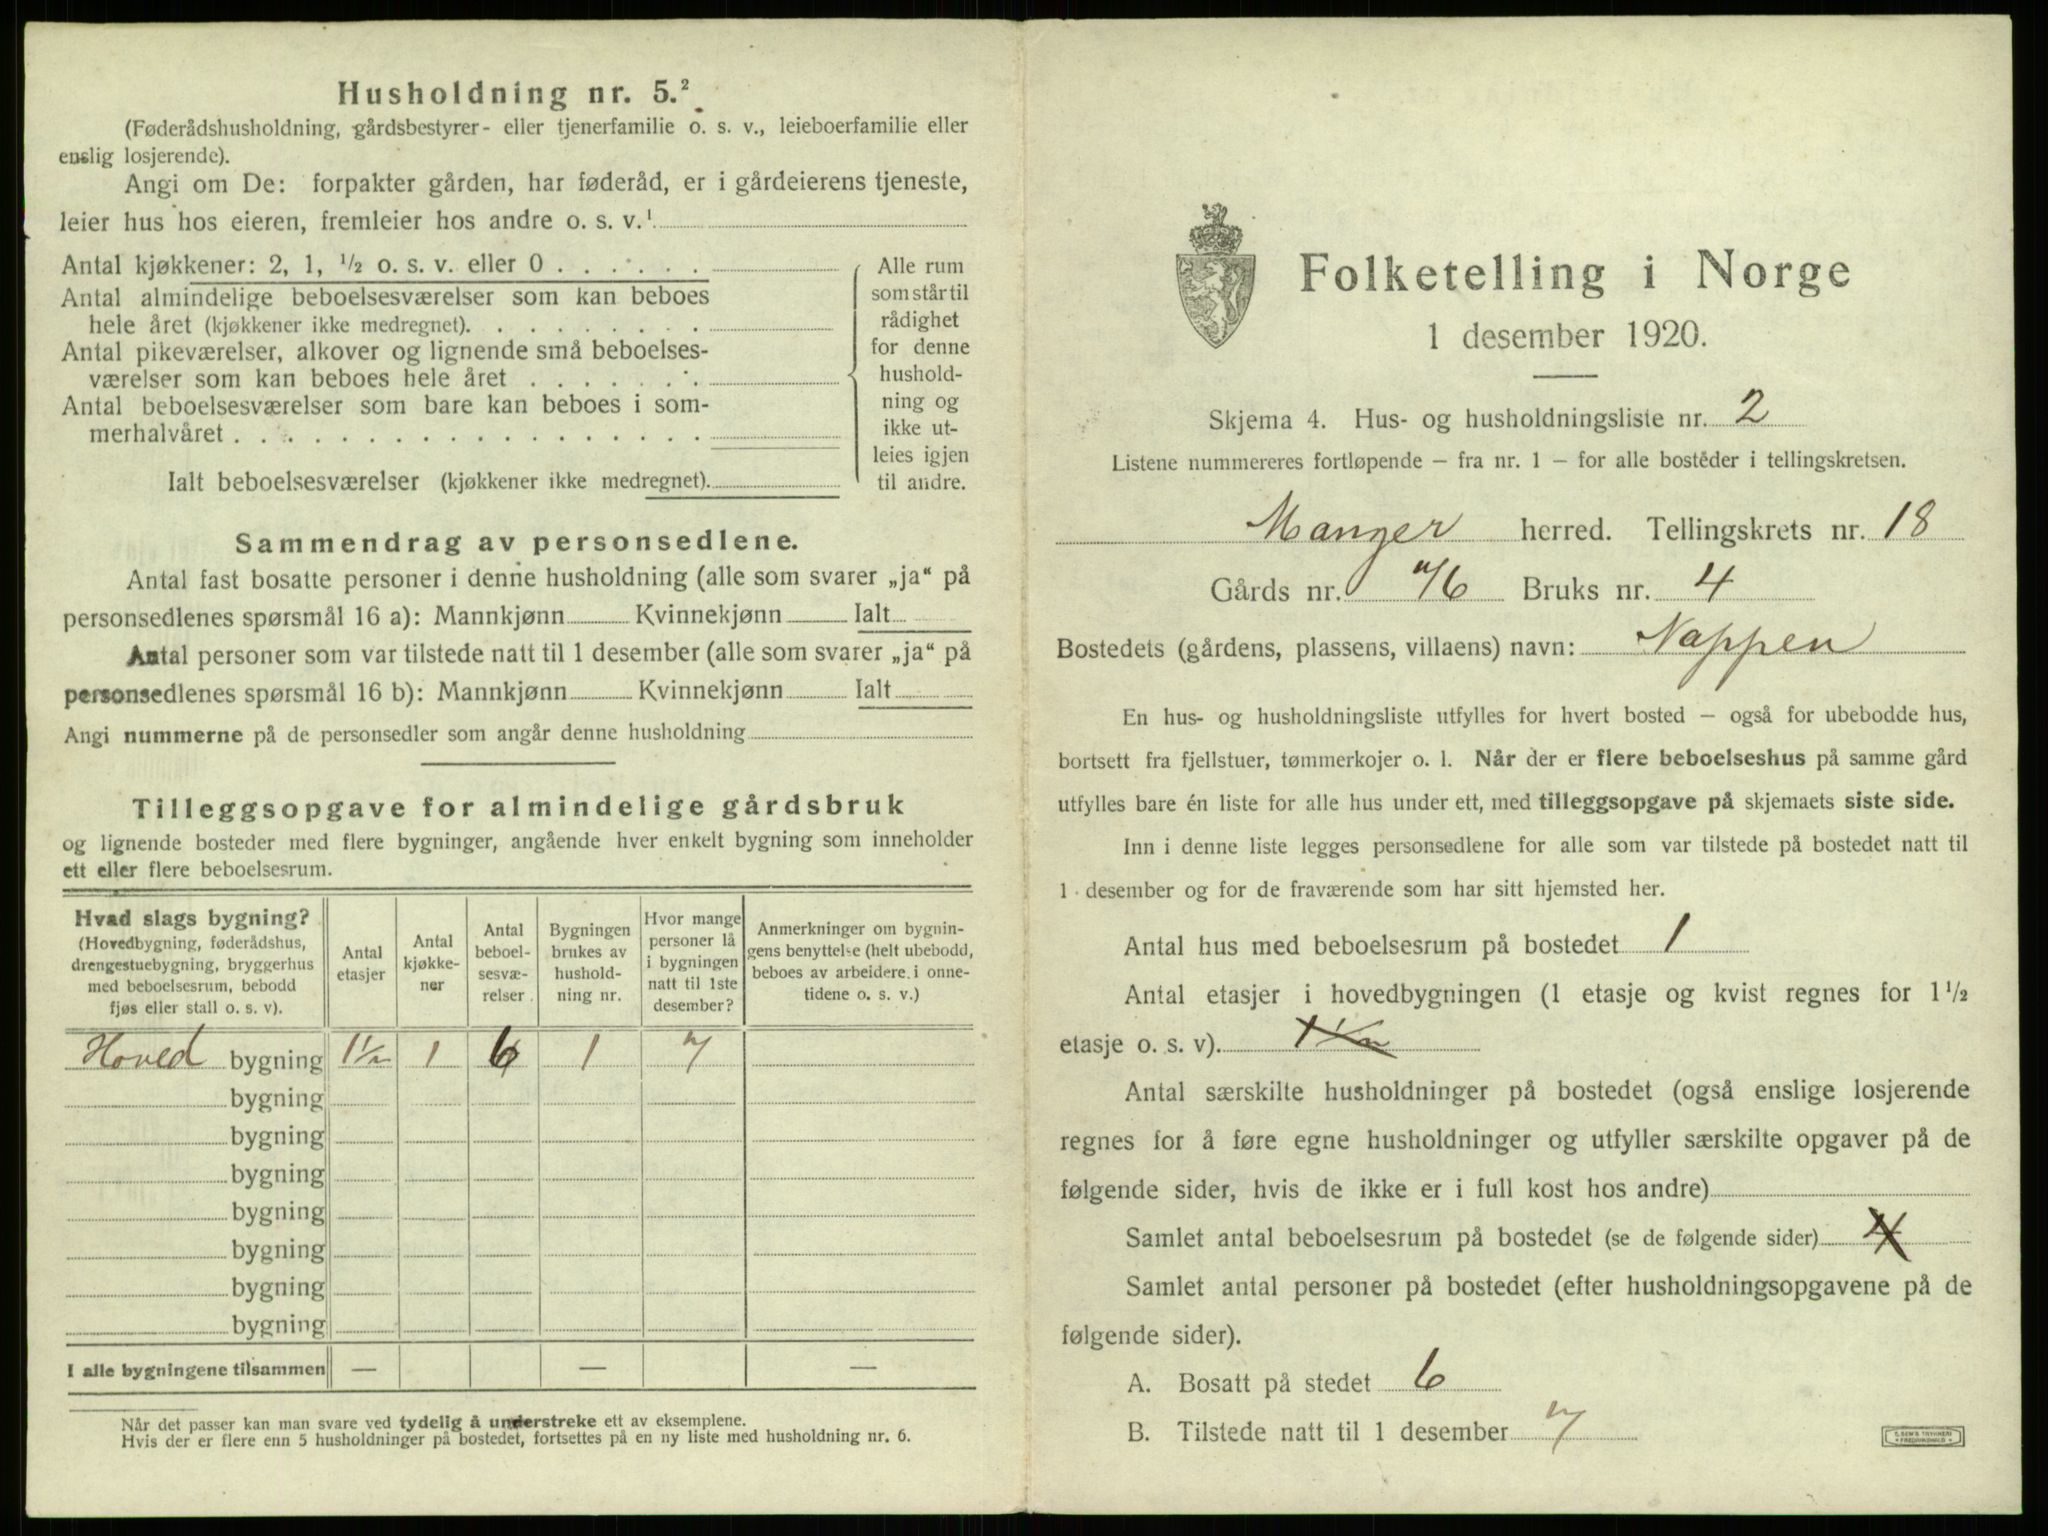 Husholdning nr. 5.²
(Føderådshusholdning, gårdsbestyrer- eller tjenerfamilie o. s. v., leieboerfamilie eller
enslig losjerende).
Angi om De: forpakter gården, har føderåd, er i gårdeierens tjeneste,
leier hus hos eieren, fremleier hos andre o. s. v.¹
Antal kjøkkener: 2, 1, ½ o. s. v. eller 0
Antal almindelige beboelsesværelser som kan beboes
hele året (kjøkkener ikke medregnet).
Antal pikeværelser, alkover og lignende små beboelses-
værelser som kan beboes hele året
Antal beboelsesværelser som bare kan beboes i som-
merhalvåret
Ialt beboelsesværelser (kjøkkener ikke medregnet).
Alle rum
som står til
rådighet
for denne
hushold-
ning og
ikke ut-
leies igjen
til andre.
Sammendrag av personsedlene.
Antal fast bosatte personer i denne husholdning (alle som svarer „ja“ på
personsedlenes spørsmål 16 a): Mannkjønn Kvinnekjønn Ialt
Antal personer som var tilstede natt til 1 desember (alle som svarer „ja“ på
personsedlenes spørsmål 16 b): Mannkjønn Kvinnekjønn Ialt
Angi nummerne på de personsedler som angår denne husholdning
Tilleggsopgave for almindelige gårdsbruk
og lignende bosteder med flere bygninger, angående hver enkelt bygning som inneholder
ett eller flere beboelsesrum.
Hvad slags bygning?
(Hovedbygning, føderådshus,
drengestuebygning, bryggerhus
med beboelsesrum, bebodd
fjøs eller stall o. s. v).
Antal
etasjer
Antal
kjøkke-
ner
Antal
beboel-
sesvæ-
relser
Bygningen
brukes av
hushold-
ning nr.
Hvor mange
personer lå
i bygningen
natt til 1ste
desember?
Anmerkninger om bygnin-
gens benyttelse (helt ubebodd,
beboes av arbeidere i onne-
tidene o. s. v.)
Hoved bygning 1½ 1 6 1 7
bygning
bygning
bygning
bygning
bygning
bygning
bygning
I alle bygningene tilsammen — — —
Når det passer kan man svare ved tydelig å understreke ett av eksemplene.
Hvis der er flere enn 5 husholdninger på bostedet, fortsettes på en ny liste med husholdning nr. 6.
Folketelling i Norge
1 desember 1920.
Skjema 4. Hus- og husholdningsliste nr. 2
Listene nummereres fortløpende – fra nr. 1 – for alle bosteder i tellingskretsen.
Manger herred. Tellingskrets nr. 18
Gårds nr. 76 Bruks nr. 4
Bostedets (gårdens, plassens, villaens) navn: Nappen
En hus- og husholdningsliste utfylles for hvert bosted – også for ubebodde hus,
bortsett fra fjellstuer, tømmerkojer o. l. Når der er flere beboelseshus på samme gård
utfylles bare én liste for alle hus under ett, med tilleggsopgave på skjemaets siste side.
Inn i denne liste legges personsedlene for alle som var tilstede på bostedet natt til
1 desember og for de fraværende som har sitt hjemsted her.
Antal hus med beboelsesrum på bostedet 1
Antal etasjer i hovedbygningen (1 etasje og kvist regnes for 1½
etasje o. s. v). 1½
Antal særskilte husholdninger på bostedet (også enslige losjerende
regnes for å føre egne husholdninger og utfyller særskilte opgaver på de
følgende sider, hvis de ikke er i full kost hos andre)
Samlet antal beboelsesrum på bostedet (se de følgende sider) 4
Samlet antal personer på bostedet (efter husholdningsopgavene på de
følgende sider).
A. Bosatt på stedet 6
B. Tilstede natt til 1 desember 7